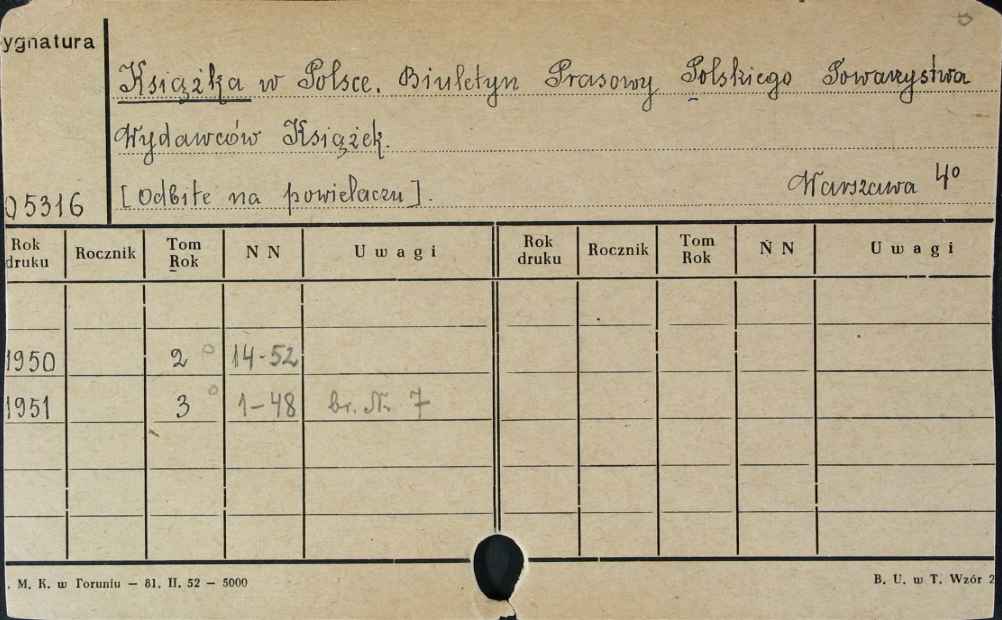 ygnatura
Książka w Polsce. Biuletyn Prasowy Polskiego Towarzystwa
Wydawców Książek.
[Odbite na powielaczu]. Warszawa 4º
05316
Rok druku Rocznik Tom Rok N N Uwagi Rok druku Rocznik Tom Rok N N Uwagi
1950 2 º 14-52
1951 3 º 1-48 br. Nr. 7
. M. K. w Toruniu — 81. II. 52 — 5000 B. U. w T. Wzór 2